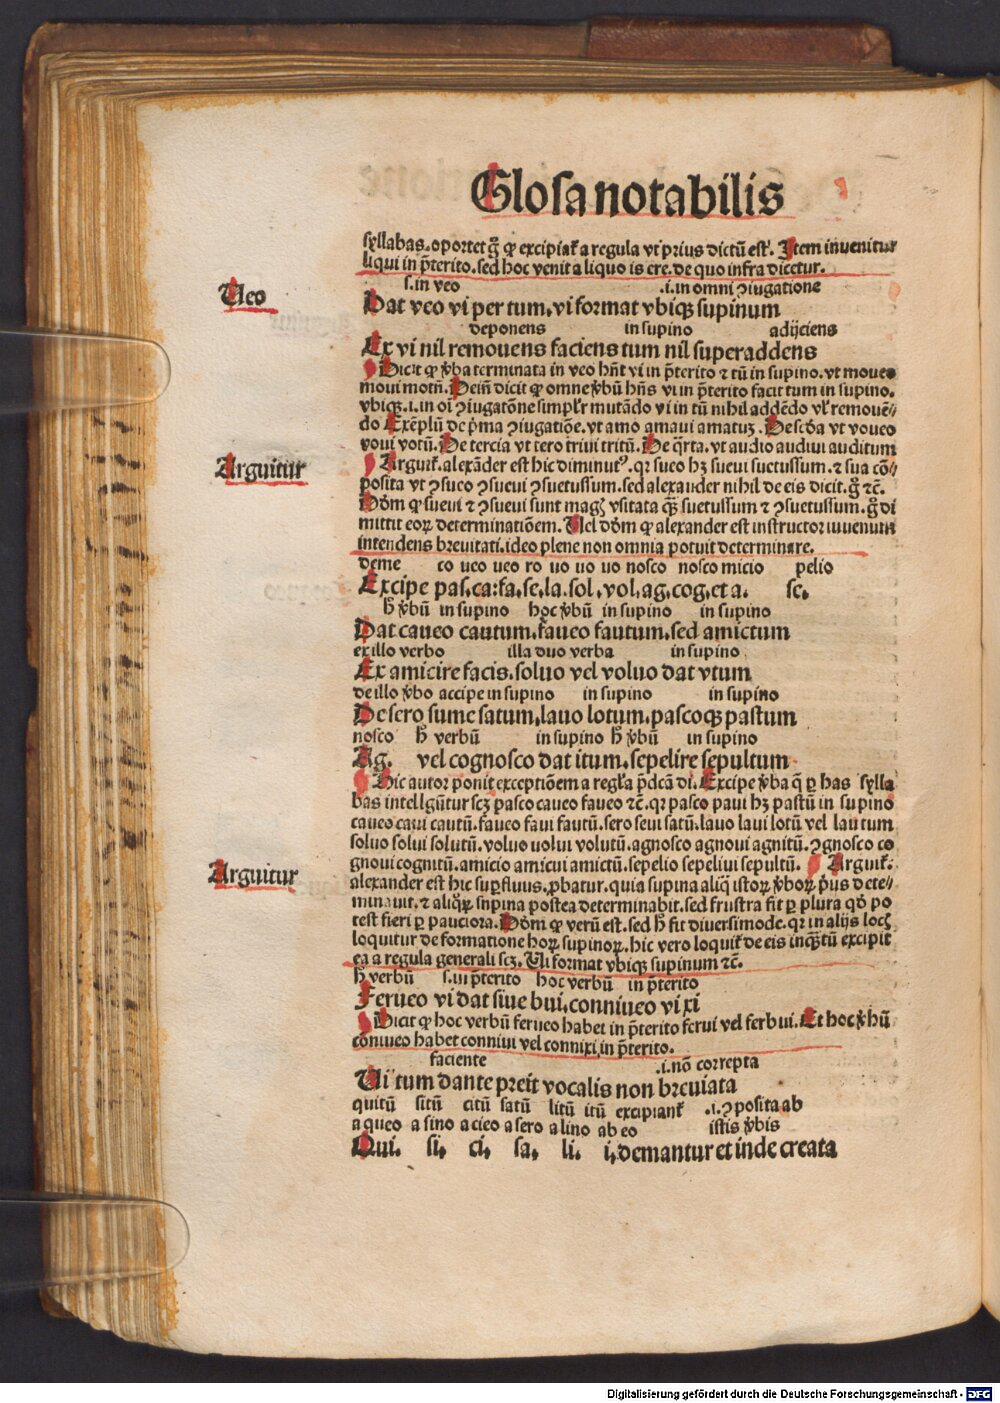 Glosa notabilis
syllabas. oportet gͦ ꝙ excipiat̄ a regula vt prius dictū est. Item inuenitur
liqui in p̄terito. sed hoc venit a liquo is ere. de quo infra dicetur.
s. in veo .i. in omni ꝯiugatione
Ueo
Dat veo vi per tum, vi format vbiqꝫ supinum
deponens in supino adijciens
Ex vi nil remouens faciens tum nil superaddens
Dicit ꝙ v̄ba terminata in veo hn̄t vi in p̄terito ⁊ tū in supino. vt moueo
moui motū. Dein̄ dicit ꝙ omne v̄bū hn̄s vi in p̄terito facit tum in supino.
vbiqꝫ. i. in oī ꝯiugatōne simplr̄ mutādo vi in tū nihil addēdo vl' remouē/
do Exēplū de p̄ma ꝯiugatiōe. vt amo amaui amatuꝫ. De scd̄a vt voueo
voui votū. De tercia vt tero triui tritū. De q̄rta. vt audio audiui auditum
Arguitur
Arguit̄. alexāder est hic diminutꝰ. qꝛ sueo hꝫ sueui suetussum. ⁊ sua cō/
posita vt ꝯsueo ꝯsueui ꝯsuetussum. sed alexander nihil de eis dicit. gͦ ⁊c̄.
Dd̄m ꝙ sueui ⁊ ꝯsueui sunt mag̉ vsitata qꝫ̄ suetussum ⁊ ꝯsuetussum. gͦ di
mittit eoꝝ determinatiōem. Uel dd̄m ꝙ alexander est instructor iuuenum
intendens breuitati. ideo plene non omnia potuit determinare.
deme co uco ueo ro uo uo uo nosco nosco micio pelio
Excipe pas. ca: fa. se. la. sol. vol, ag, cog, et a. se,
h̄ v̄bū in supino hoc v̄bū in supino in supino
Dat caueo cautum. faueo fautum. sed amictum
ex illo verbo illa duo verba in supino
Ex amicire facis. soluo vel voluo dat vtum
de illo v̄bo accipe in supino in supino in supino
De sero sume satum, lauo lotum. pascoqꝫ pastum
nosco h̄ verbū in supino h̄ v̄bū in supino
Ag. vel cognosco dat itum. sepelire sepultum
Hic autor ponit exceptiōem a regl'a p̄dcā di. Excipe v̄ba q̄ ꝑ has sylla
bas intellgūtur scꝫ pasco caueo faueo ⁊c̄. qꝛ pasco paui hꝫ pastū in supino
caueo caui cautū. faueo faui fautū. sero seui satū. lauo laui lotū vel lautum
soluo solui solutū. voluo uolui volutū. agnosco agnoui agnitū. ꝯgnosco co
gnoui cognitū. amicio amicui amictū. sepelio sepeliui sepultū. Arguit̄.
Arguitur
alexander est hic supflu̅us. ꝓbatur. quia supina aliq̄ istoꝝ v̄boꝝ p̄us dete/
minauit. ⁊ aliqͦꝝ supina postea determinabit. sed frustra fit ꝑ plura qd̄ po
test fieri ꝑ pauciora. Dd̄m ꝙ verū est. sed h̄ fit diuersimode. qꝛ in alijs locꝫ
loquitur de formatione hoꝝ supinoꝝ. hic vero loquit̄ de eis inqꝫ̄tū excipit
ea a regula generali scꝫ. Ui format vbiqꝫ supinum ⁊c̄.
h̄ verbū s. in p̄terito hoc verbū in p̄terito
Ferueo vi dat siue bui, conniueo vi xi
Dicit ꝙ hoc verbū ferueo habet in p̄terito ferui vel ferbui. Et hoc v̄bū
coniueo habet conniui vel connixi, in p̄terito.
faciente .i. nō correpta
Ui tum dante preit vocalis non breuiata
quitū sitū citū satū litū itū excipiant̄ .i. ꝯposita ab
a queo a sino a cieo a sero a lino ab eo istis v̄bis
Qui. si, ci, sa, li. i, demantur et inde creata
Digitalisierung gefördert durch die Deutsche Forschungsgemeinschaft - DFG